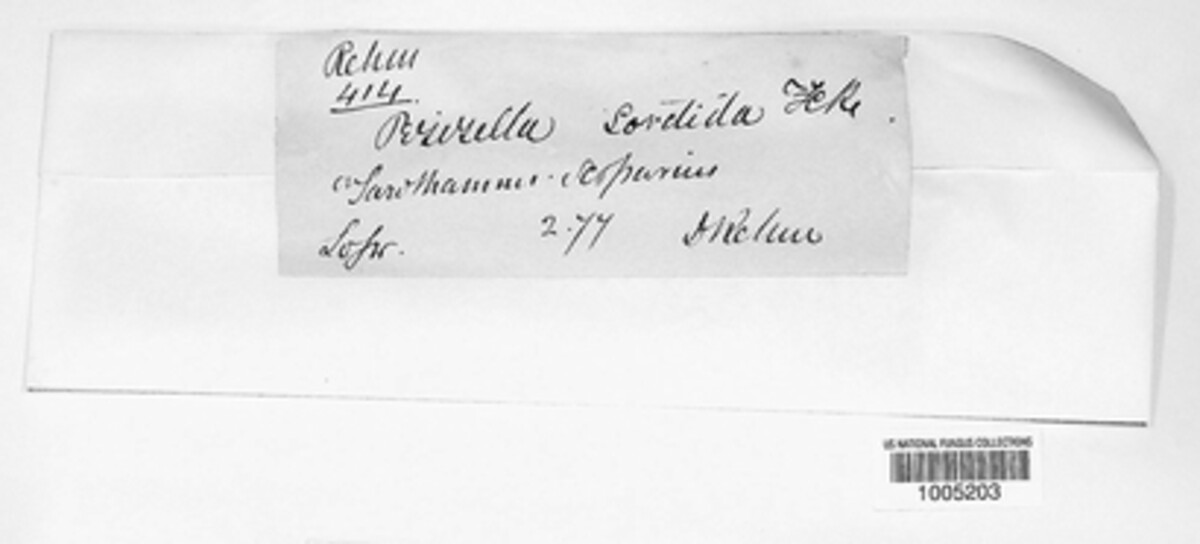 Rehm
414.
Pezizella sordida Fckl.
Sarothamnus scoparius
Lohr. 2.77 Dr Rehm
US NATIONAL FUNGUS COLLECTIONS
1005203